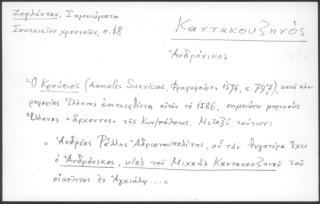 Ζερλέντου, Σημειώματα
Σουηκικῶν χρονικῶν, σ. 18
Καντακουζηνός
Ἀνδρόνικος
Ὁ Κρούσιος (Annales Suevicae, Φραγκφούρτη 1596, σ. 797), κατὰ πλη-
ροφορίες Ἕλληνος ἐπισκεφθέντος αὐτὸν τὸ 1586, σημειώνει μερικοὺς
Ἕλληνας «ἄρχοντες» τῆς Κων/πόλεως. Μεταξὺ τούτων:
« Ἀνδρέας Ῥάλλης Ἀδριανουπολίτης, οὗ τὴν θυγατέρα ἔχει
ὁ Ἀνδρόνικος, υἱὸς τοῦ Μιχαὴλ Καντακουζηνοῦ τοῦ
οἰκοῦντος ἐν Ἀγχιάλῳ ... »